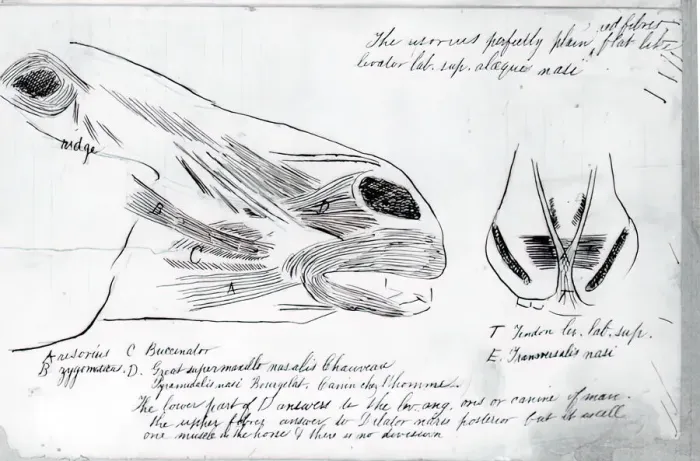 The risorius perfectly plain, red fibres flat like
levator lab. sup. alæque nasi
ridge
B
C
A
D
T
A resorius C Buccinator
B zygomaticus. D. Great supermaxillo nasalis Chauveau
Pyramidalis nasi Bourgelat. Canin chez l'homme.
The lower part of D answers to the lev. ang. oris or canine of man.
the upper fibres answer to Dilator naris posterior but it is all
one muscle in the horse & there is no division
T Tendon lev. lab. sup.
E. Transversalis nasi